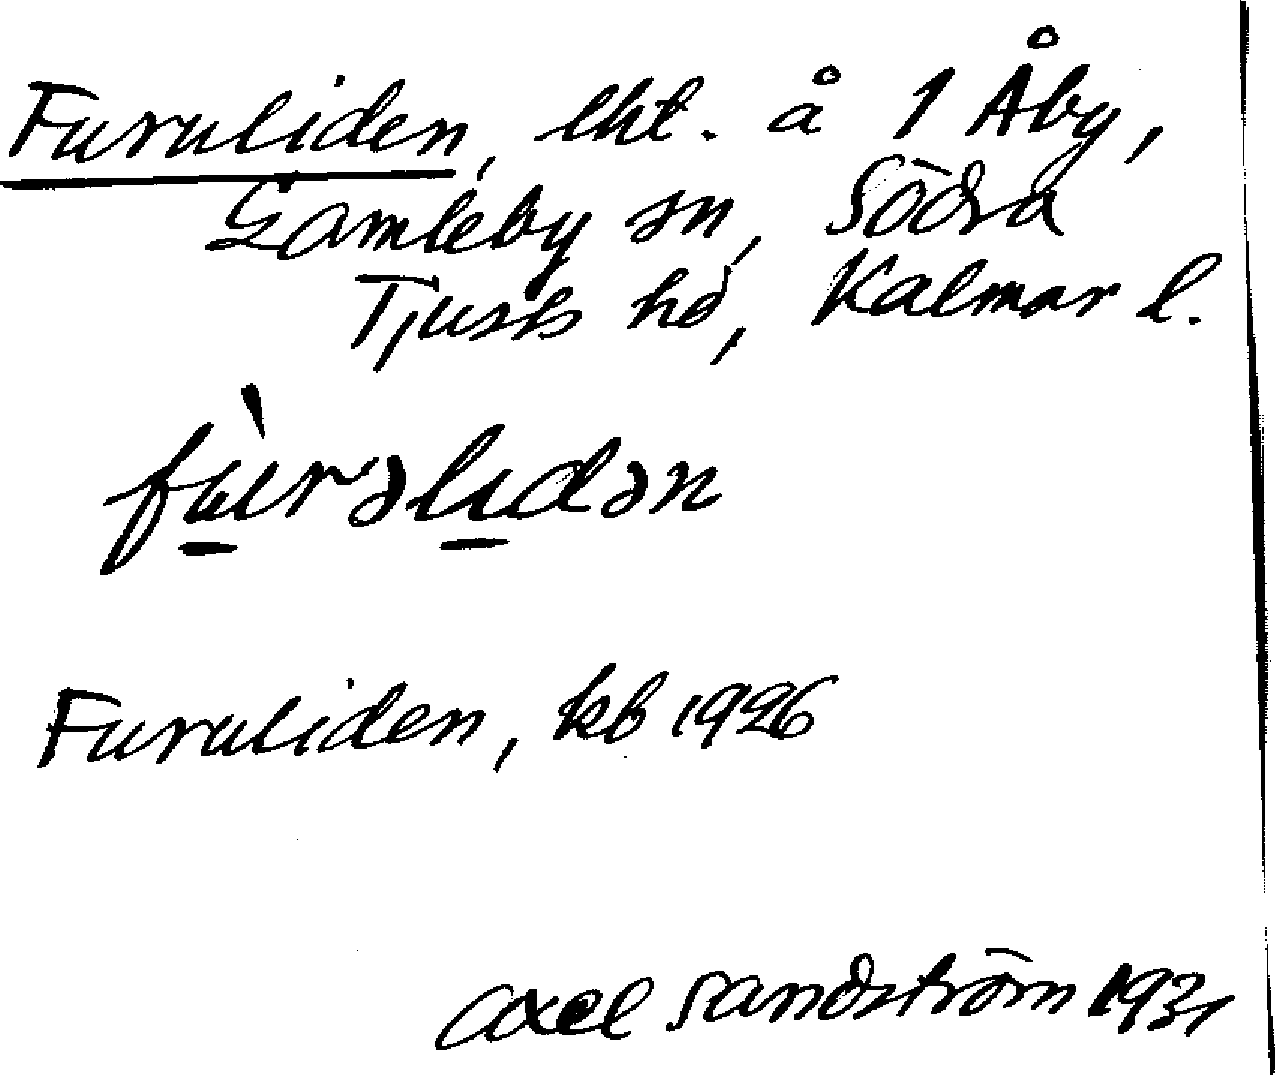 Furuliden, lht. å 1 Åby,
Gamleby sn, Södra
Tjusts hd, Kalmar l.
fù̱rəlı̱dən
Furuliden, kb 1926
Axel Sandström 1931